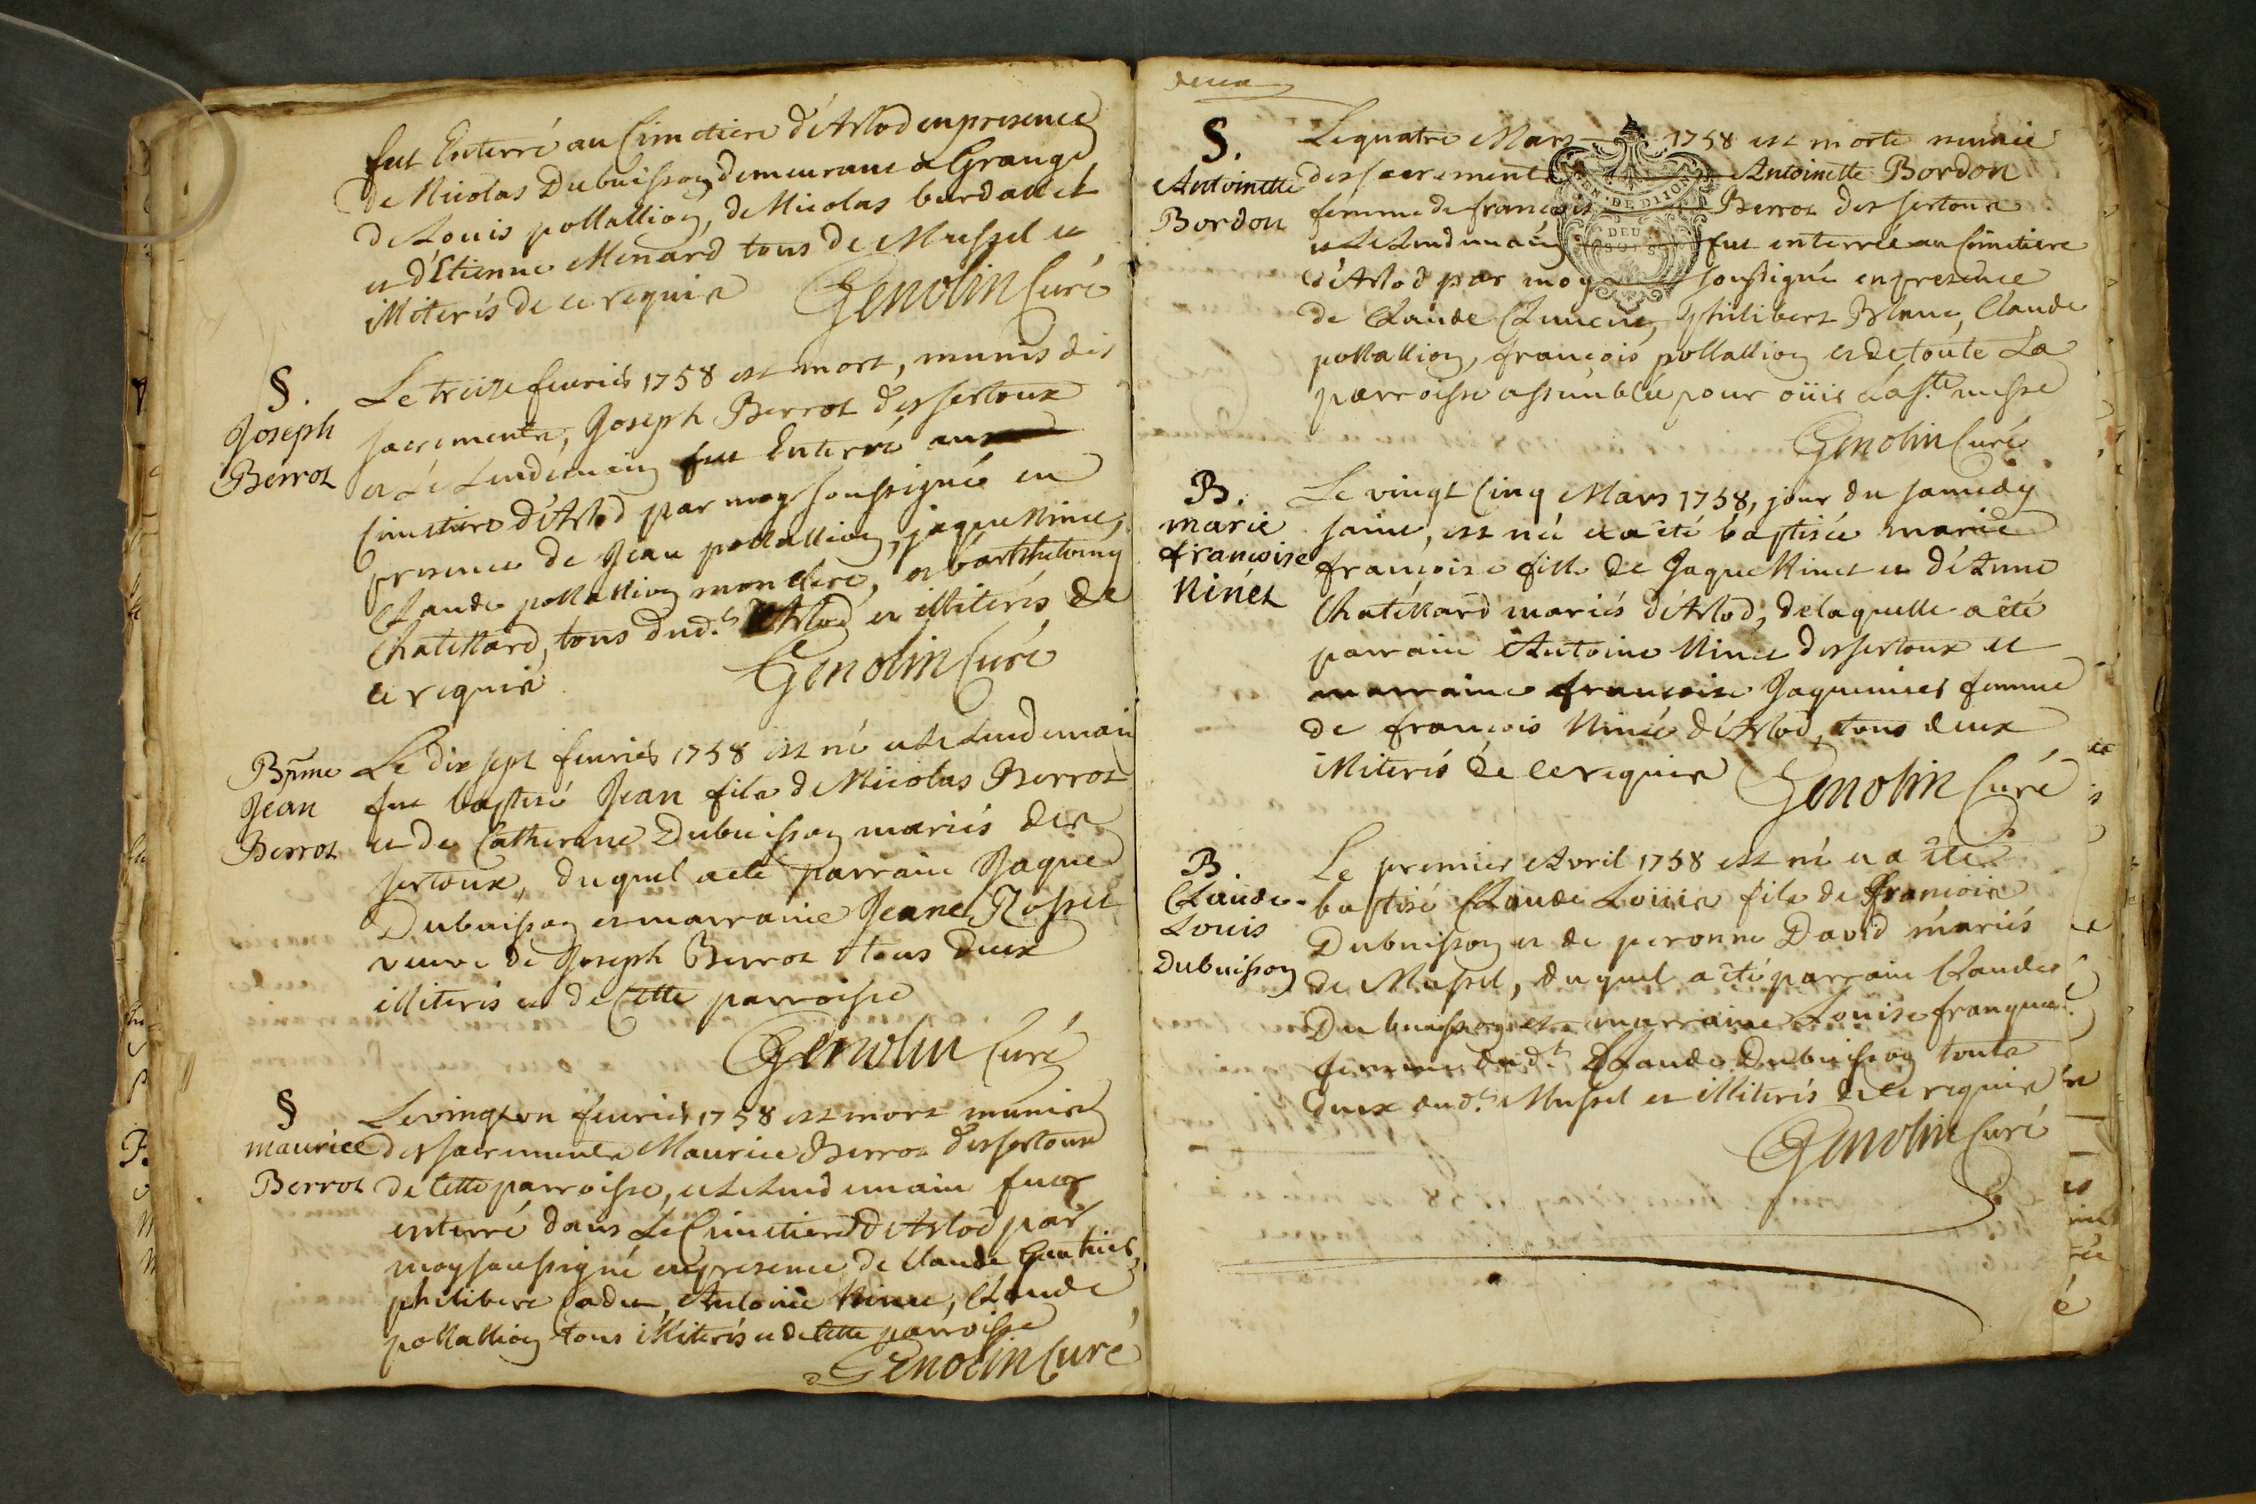 fut Enterré au Cimetiere d'Arlod en presence
de Nicolas Dubuisson demeurant a Grange
de Louis pollallion, de Nicolas burdallet
et d'Etienne Menard tous de Mussel et
illiterés de ce requis Genolin Curé
§.
Joseph
Berrot
Le treize fevrier 1758 est mort, munis des
sacrements, Joseph Berrot des sertoux
et le Lendemain fut Enterré au
Cimetiere d'Arlod par moy soussigné en
presence de Jean pollallion, jaque Ninet,
Claude pollallion mon clerc, et barthelemy
Chatellard, tous dud.t Arlod et illiterés de
ce requis Genolin Curé
Bpme
Jean
Berrot
Le dix sept fevrier 1758 est né et le Lendemain
fut baptisé Jean fils de Nicolas Berrot
et de Catherine Dubuisson mariés des
sertoux, duquel a eté parrain Jaque
Dubuisson et marraine Jeane Rosset
veuve de Joseph Berrot tous deux
illiterés et de Cette parroisse
Genolin Curé
§
maurice
Berrot
Le vingt un fevrier 1758 est mort munis
des sacrements Maurice Berrot des sertoux
de Cette parroisse, et le Lendemain fut
enterré dans Le Cimetiere d'Arlod par
moy soussigné en presence de Claude Gauthier,
philibert Cadet, Antoine Ninet, Claude
pollallion tous illiterés et de Cette parroisse
Genolin Curé
deux
S.
Antoinette
Bordon
Le quatre Mars 1758 est morte munie
des sacrements Antoinette Bordon
femme de françois Berrot des sertoux
et Le Lendemain fut enterrée au Cimetiere
d'Arlod par moy soussigné en presence
de Claude philibert Blanc, Claude
pollallion, françois pollallion et de toute La
parroisse assemblée pour oüir La S.te messe
Genolin Curé
GEN. DE DIJON
DEUX
SOLS
B.
marie
françoise
Ninet
Le vingt Cinq Mars 1758, jour du samedy
saint, est née et a êté baptisée marie
françoise fille de Jaque Ninet et d'Anne
Chatellard mariés d'Arlod, de laquelle a êté
parrain Antoine Ninet des sertoux et
marraine françoise Jaqueminet femme
de françois Ninet d'Arlod, tous deux
illiterés de ce requis Genolin Curé
B.
Claude-
Louis
Dubuisson
Le premier Avril 1758 est né et a êté
baptisé Claude Loüis fils de françois
Dubuisson et de peronne David mariés
de Mussel, duquel a êté parrain Claude
Dubuisson et marraine Louise franquet
femme dud.t Claude Dubuisson touts
deux dud.t Mussel et illiterés de ce requis
Genolin Curé